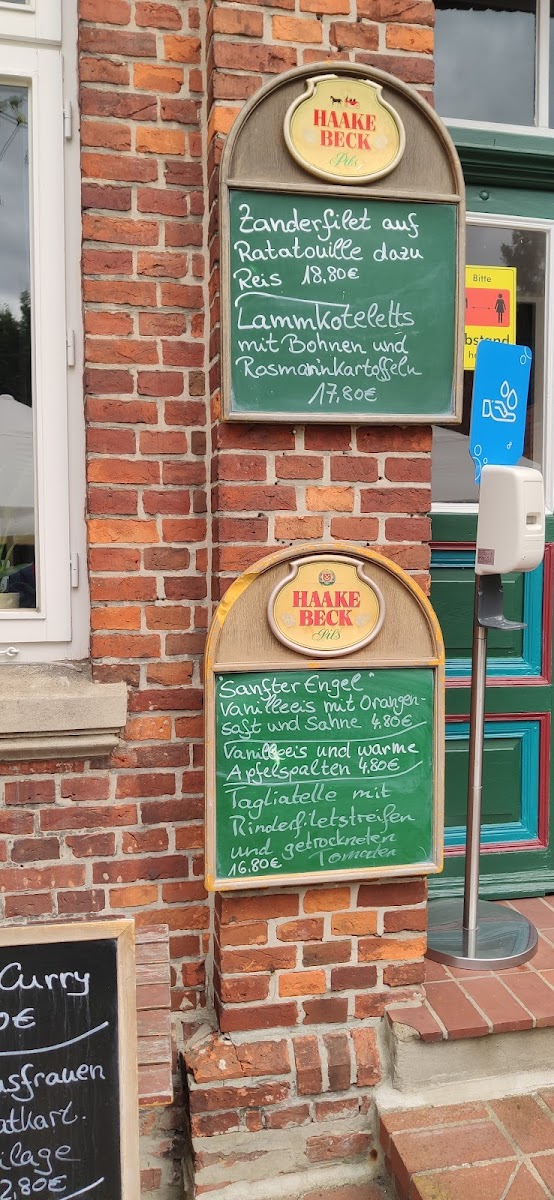 HAAKE
BECK
Pils
Zanderfilet auf
Ratatouille dazu
Reis 18,80€
Lammkoteletts
mit Bohnen und
Rosmarinkartoffeln
17,80€
Bitte
bstand
HAAKE
BECK
Pils
Sanfter Engel"
Vanilleeis mit Orangen-
saft und Sahne 4,80€
Vanilleeis und warme
Apfelspalten 4,80€
Tagliatelle mit
Rinderfiletstreifen
und getrockneten
Tomaten
16,80€
Curry
0€
usfrauen
atkart.
ilage
2,80€